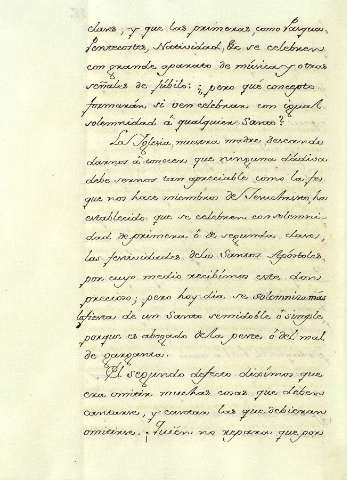 clases, y que las primeras como Pasqua
Pentecostes, Natividad, &c se celebren
con grande aparato de música y otras
señales de júbilo: ¿pero qué concepto
formarán si ven celebrar con igual
solemnidad á qualquiera Santo?
La Iglesia nuestra madre deseando
darnos á conocer que ninguna dádiva
debe sernos tan apreciable como la fe
que nos hace miembros de Jesuchristo, ha
establecido que se celebren con solemni-
dad de primera ó de segunda clase,
las festividades de los Santos Apóstoles,
por cuyo medio recibimos este don
precioso; pero hoy dia se solemniza más
la fiesta de un Santo semidoble ó simple,
porque es abogado de la peste ó del mal
de garganta.
El segundo defecto diximos que
era omitir muchas cosas que deben
cantarse, y cantar las que debieran
omitirse. ¿Quién no repara que por